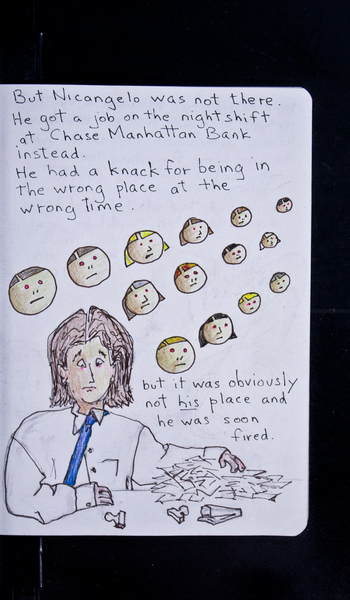 But Nicangelo was not there.
He got a job on the nightshift
at Chase Manhattan Bank
instead.
He had a knack for being in
the wrong place at the
wrong time.
but it was obviously
not his place and
he was soon
fired.